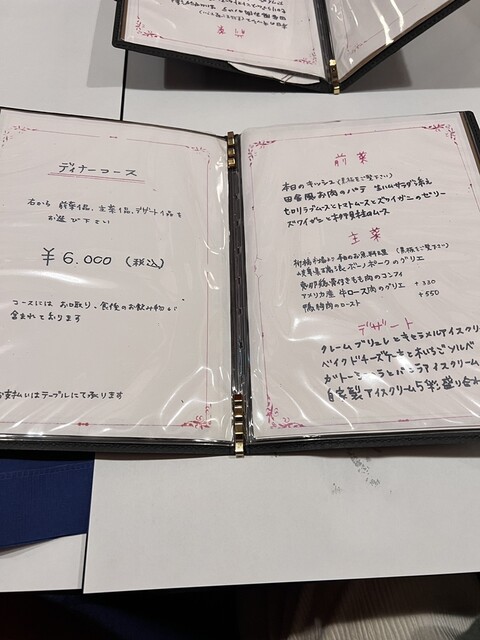 ディナーコース
右から 前菜1品、主菜1品、デザート1品を
お選び下さい
¥6,000 (税込)
コースには お口取り、食後のお飲み物が
含まれております
お支払いはテーブルにて承ります
前菜
本日のキッシュ(黒板をご覧下さい)
田舎風お肉のパテ 生ハムサラダ添え
セロリラブムースとトマトムースとズワイガニのゼリー
ズワイガニと帆立貝柱のムース
主菜
市場より 本日のお魚料理 (黒板をご覧下さい)
岐阜県 ボーノポークのグリエ
骨付きもも肉のコンフィ
アメリカ産 牛ロース肉のグリエ +330
鴨胸肉のロースト +550
デザート
クレームブリュレとキャラメルアイスクリー
ベイクドチーズケーキと木いちごソルベ
ガトーショコラとバニラアイスクリーム
自家製アイスクリーム5種盛り合わ